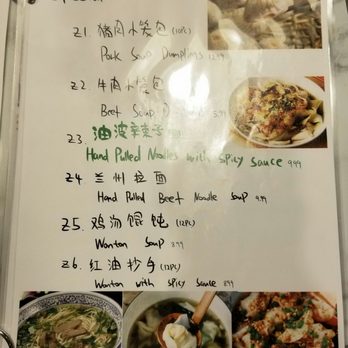 Z1. 猪肉小笼包 (10PC)
Pork Soup Dumplings
Z2. 牛肉小笼包
Beef Soup
Z3. 油泼辣子面
Hand Pulled Noodles with Spicy Sauce 9.99
Z4. 兰州拉面
Hand Pulled Beef Noodle Soup 9.99
Z5. 鸡汤馄饨 (12PC)
Wonton Soup 8.99
Z6. 红油抄手 (12PC)
Wonton with spicy Sauce 8.99